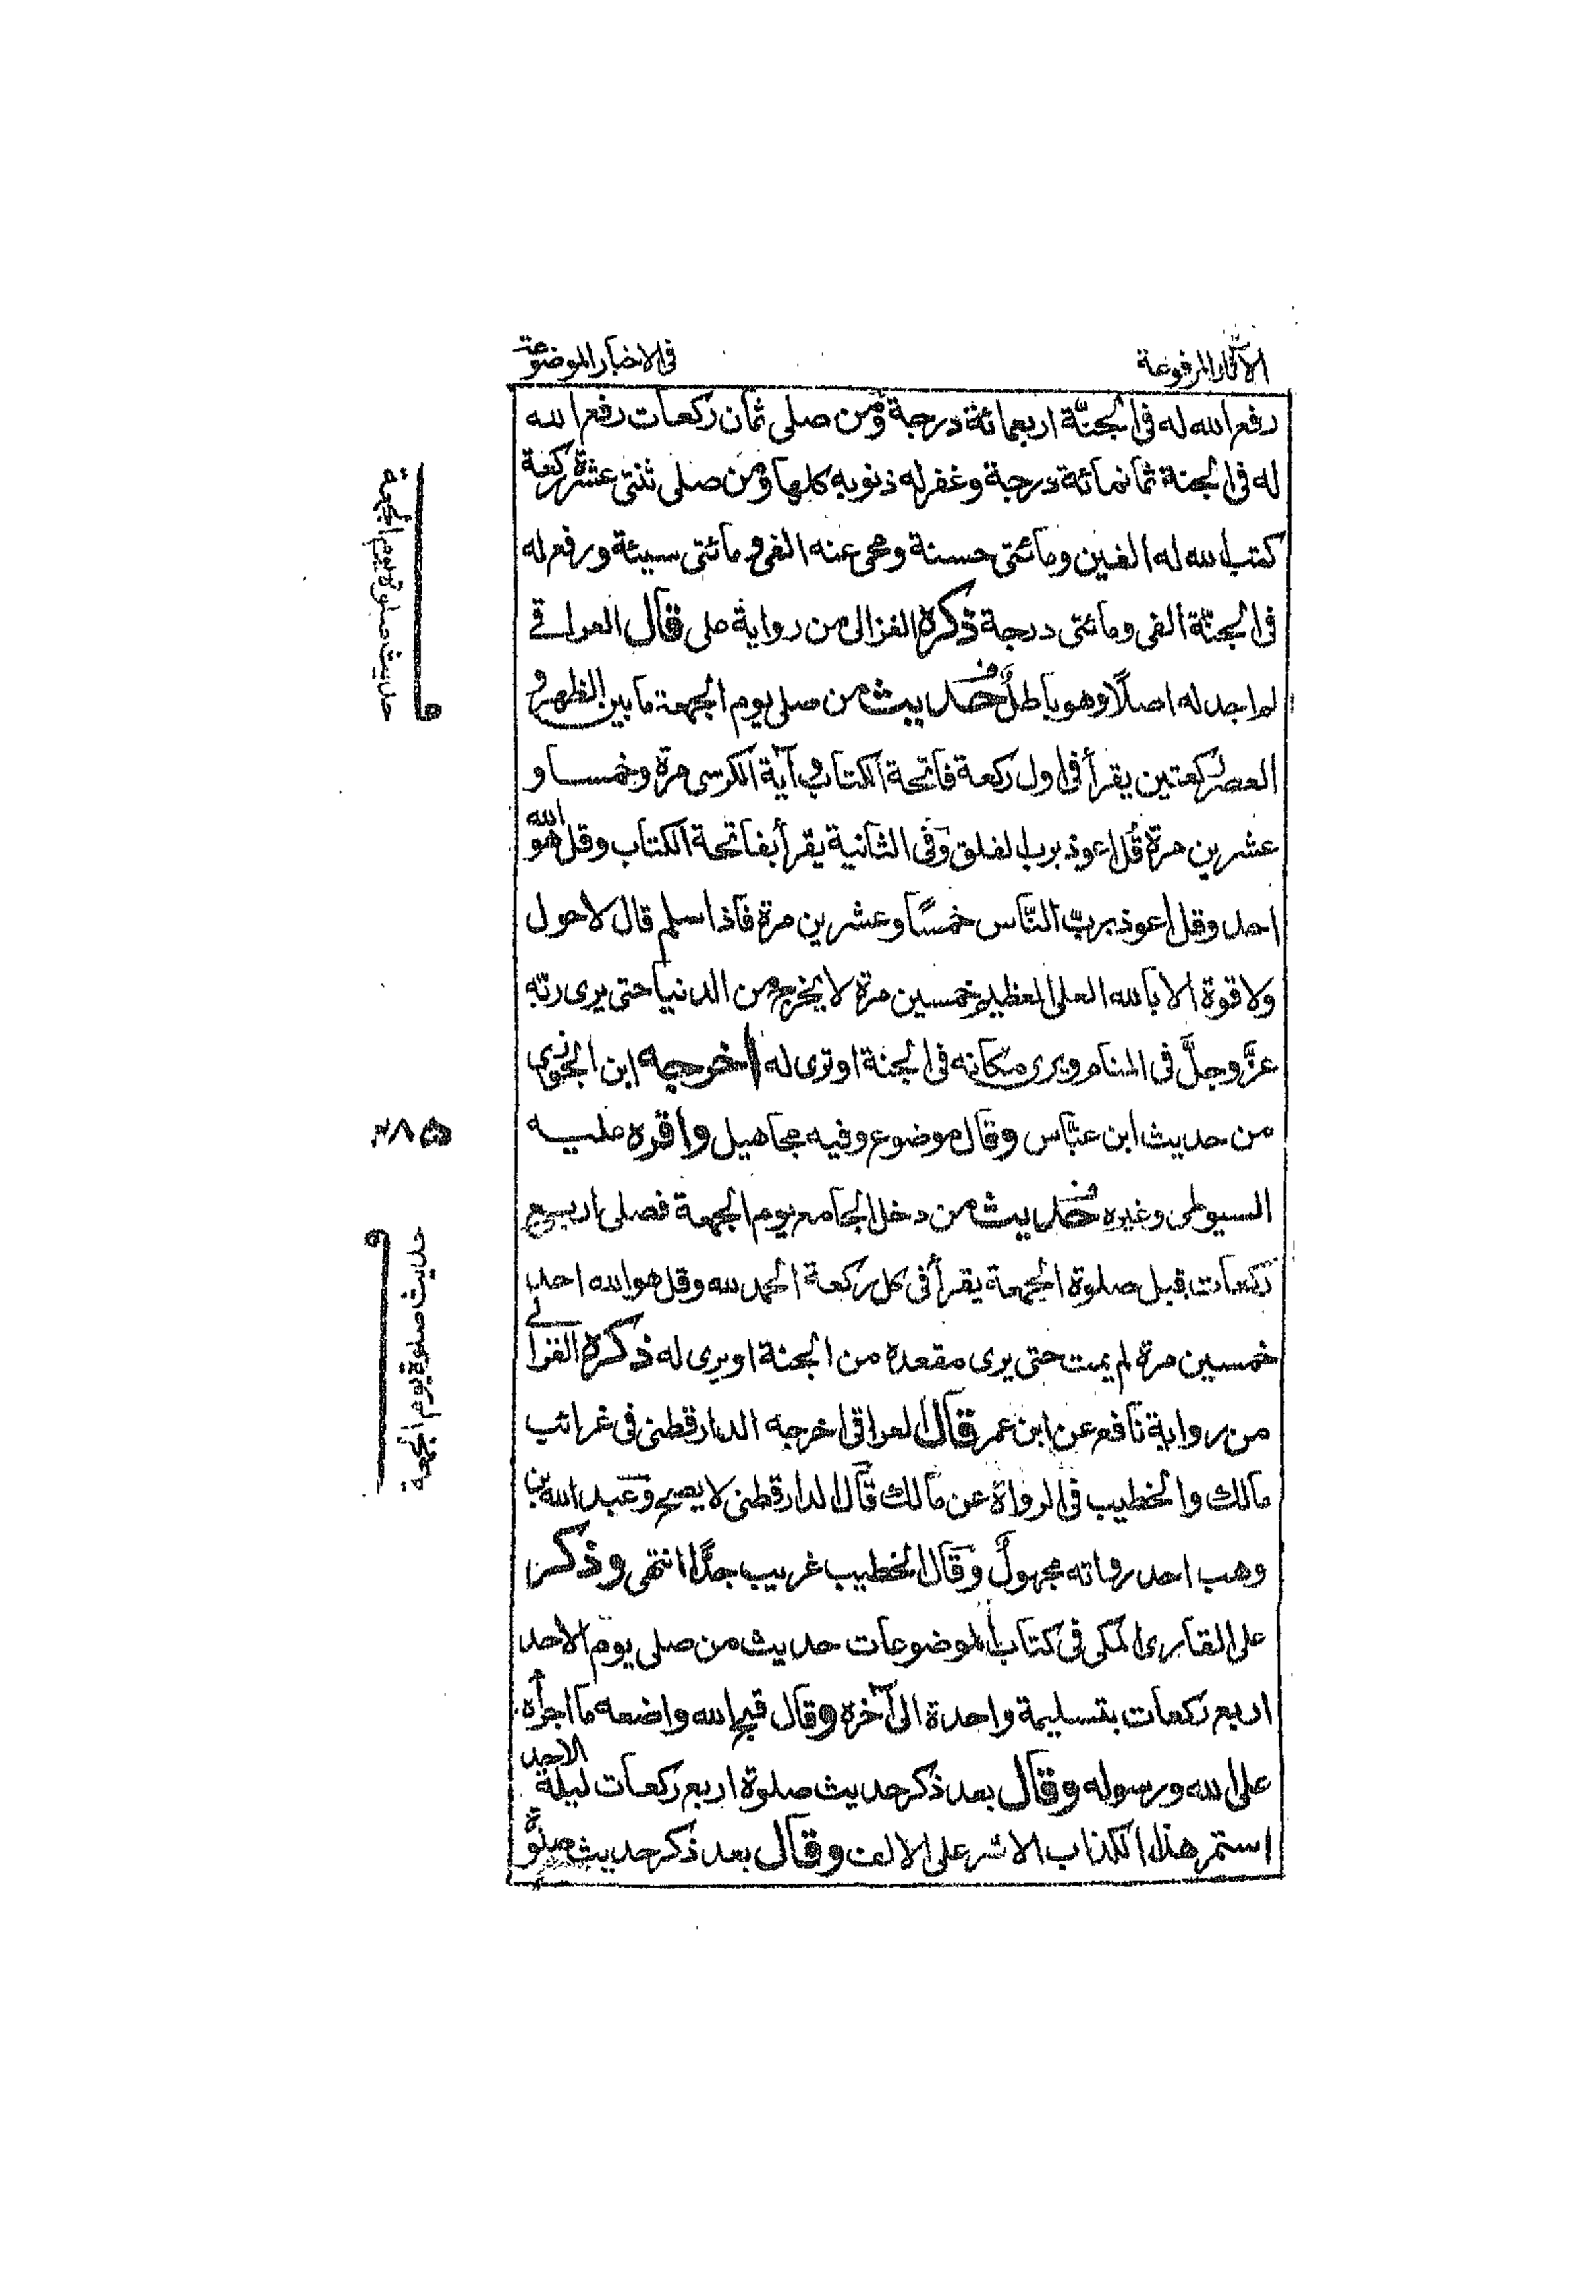 الآثار المرفوعة
فى الاخبار الموضوعة
رفع الله له فى الجنّة اربعمائة درجة ومن صلى ثمان ركعات رفع الله
له فى الجنة ثمانمائة درجة وغفر له ذنوبه كلها ومن صلى ثنتى عشرة ركعة
كتب الله له الفين ومائتى حسنة ومحى عنه الفى ومائتى سيئة ورفع له
فى الجنّة الفى ومائتى درجة ذكره الغزالى من رواية على قال العراقى
لم اجد له اصلًا وهو باطلٌ حديث من صلى يوم الجمعة ما بين الظهر و
العصر ركعتين يقرأ فى اول ركعة فاتحة الكتاب وآية الكرسى مرة وخمسا و
عشرين مرة قل اعوذ برب الفلق وفى الثانية يقرأ بفاتحة الكتاب وقل هو الله
احد وقل اعوذ بربّ النّاس خمسًا وعشرين مرة فاذا سلم قال لا حول
ولا قوة الا بالله العلى العظيم خمسين مرة لا يخرج من الدنيا حتى يرى ربّه
عزّ وجلّ فى المنام ويرى مكانه فى الجنة او ترى له اخرجه ابن الجوزى
من حديث ابن عبّاس وقال موضوع وفيه مجاهيل واقره عليه
السيوطى وغيره حديث من دخل الجامع يوم الجمعة فصلى اربع
ركعات قبل صلوة الجمعة يقرأ فى كل ركعة الحمد لله وقل هو الله احد
خمسين مرة لم يمت حتى يرى مقعده من الجنة او يرى له ذكره الغزالى
من رواية نافع عن ابن عمر قال العراقى اخرجه الدارقطنى فى غرائب
مالك والخطيب فى الرواة عن مالك قال الدارقطنى لا يصح وعبد الله بن
وهب احد رواته مجهولٌ وقال الخطيب غريب جدًّا انتهى وذكر
على القارى المكى فى كتاب الموضوعات حديث من صلى يوم الاحد
اربع ركعات بتسليمة واحدة الى آخره وقال قبح الله واضعه ما اجرأه
على الله ورسوله وقال بعد ذكر حديث صلوة اربع ركعات ليلة الاحد
استمر هذا الكذاب الاشر على الالف وقال بعد ذكر حديث صلوة
حديث صلوة يوم الجمعة
٢٨٥
حديث صلوة يوم الجمعة